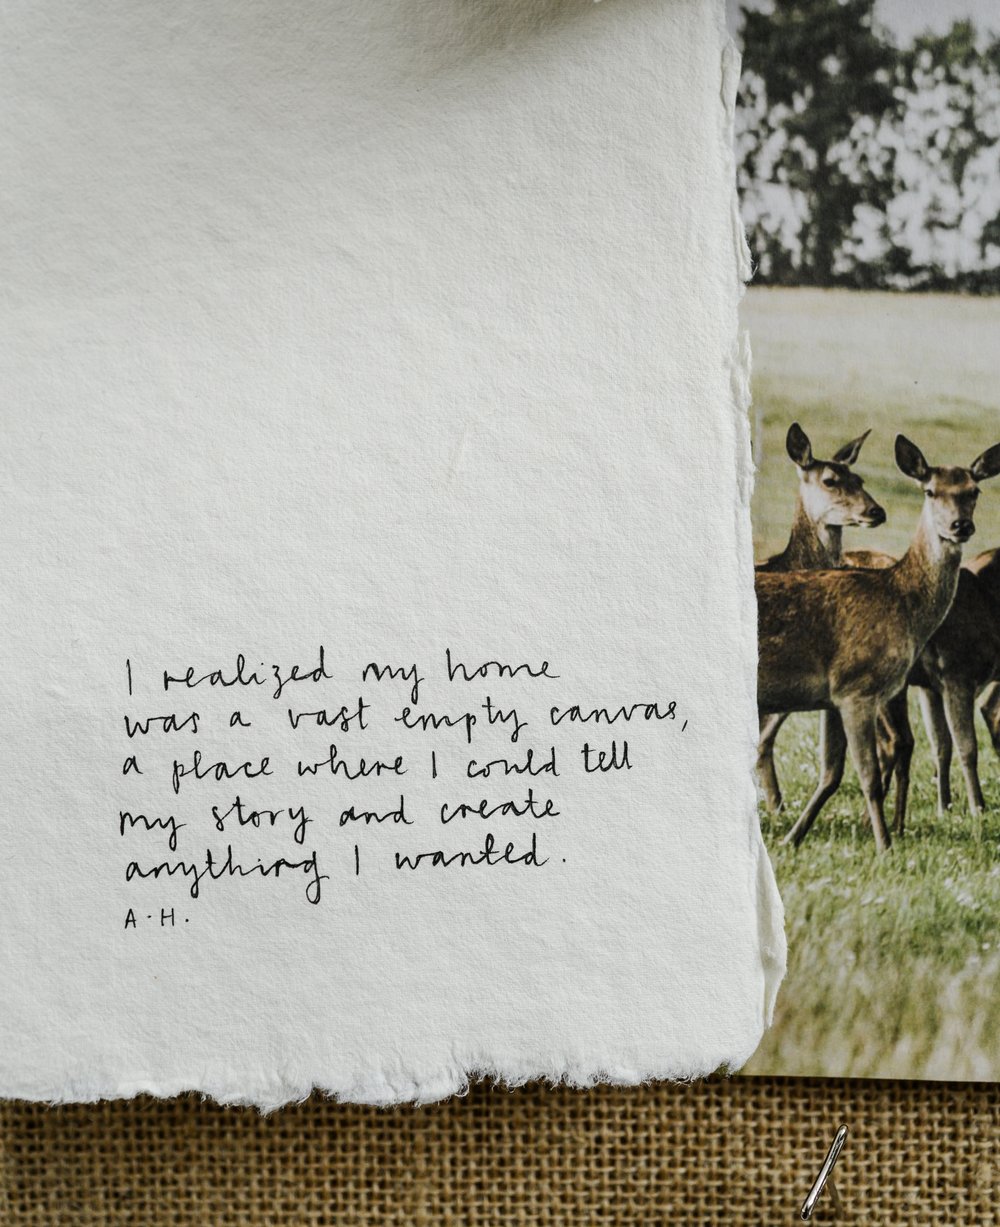 I realized my home
was a vast empty canvas,
a place where I could tell
my story and create
anything I wanted.
A.H.